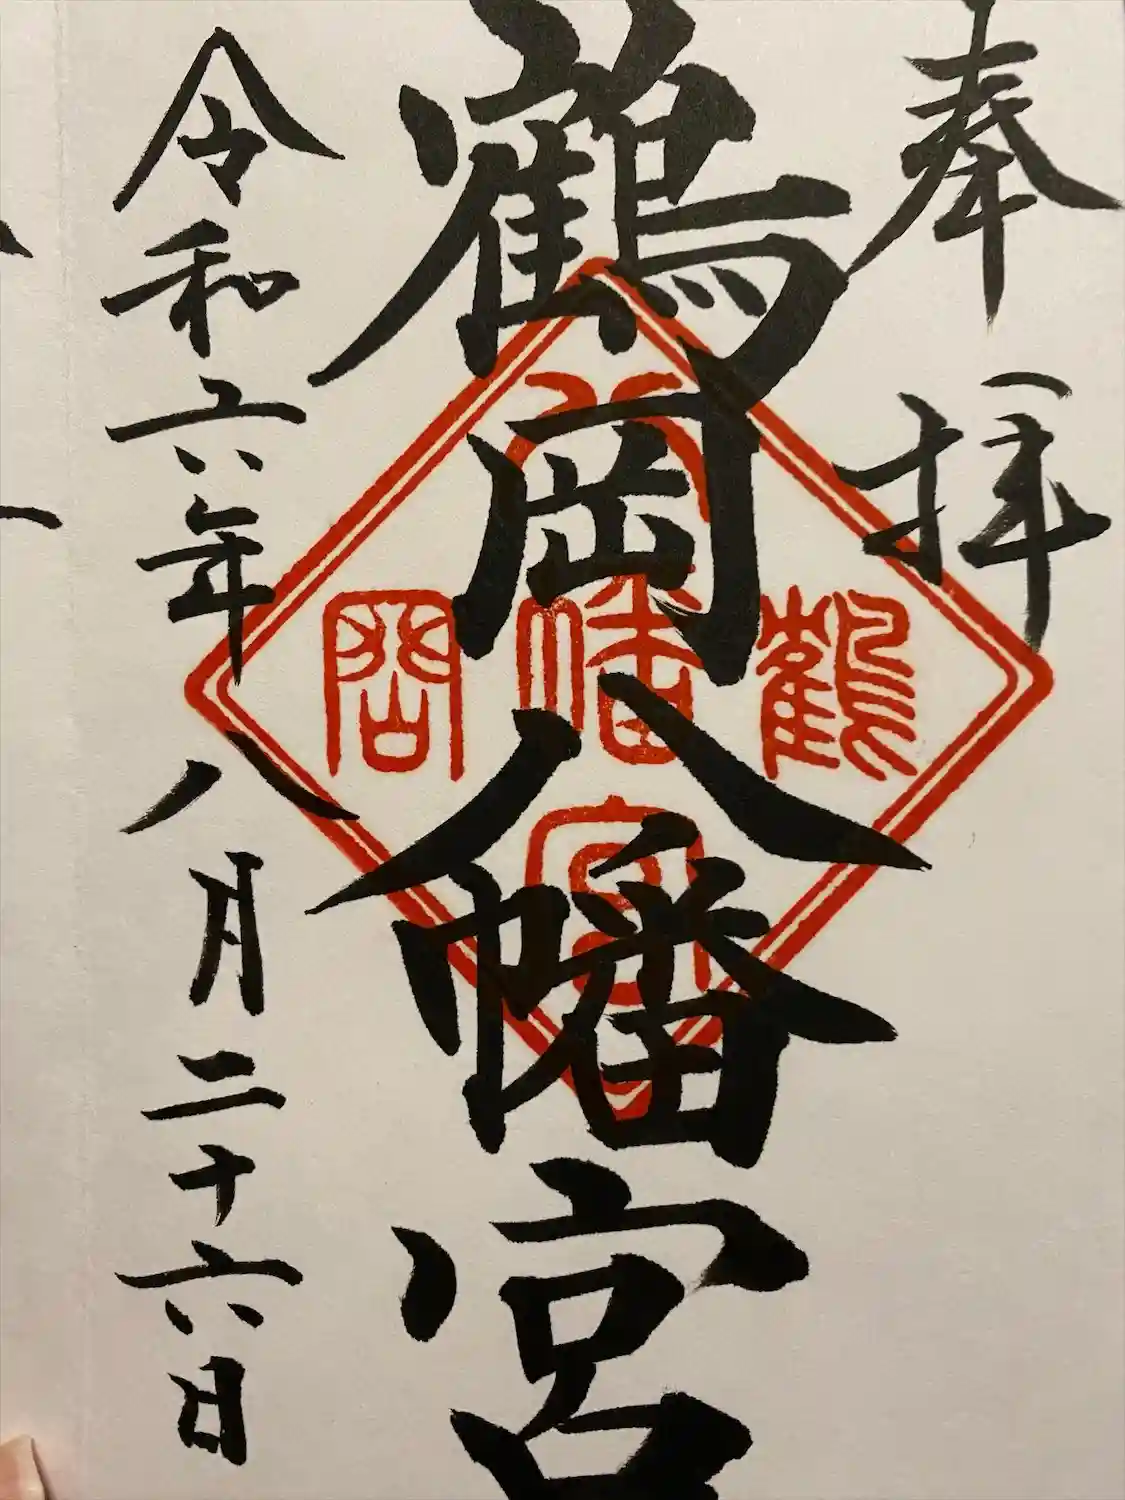 奉拝
鶴岡八幡宮
八
鶴幡岡
宮
令和六年八月二十六日